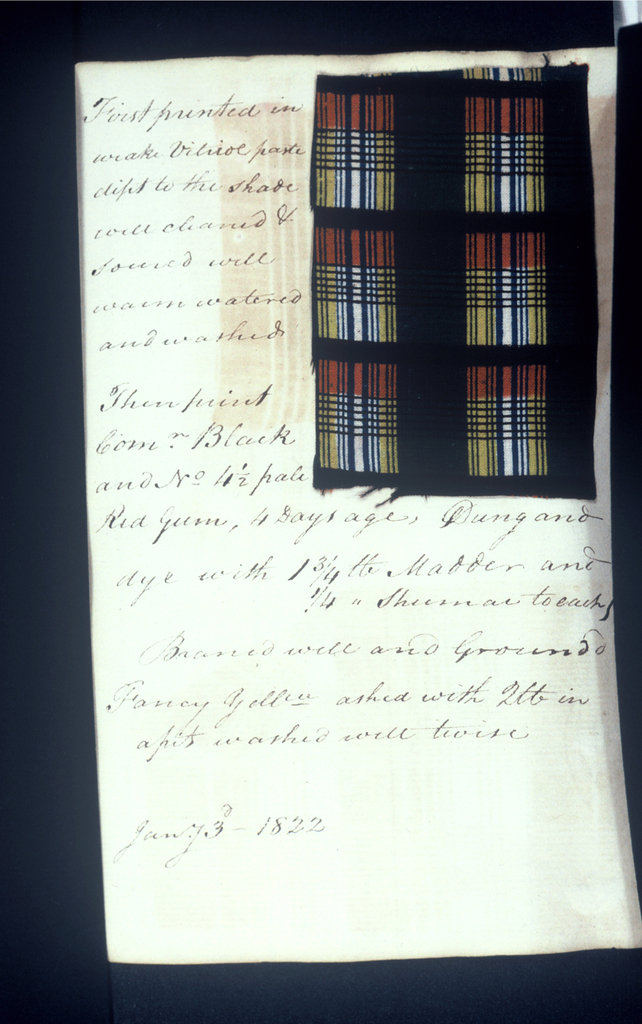 First printed in
weake Vitriol paste
dipt to the shade
well cleaned &
soured well
warm watered
and washed
Then print
Comr. Black
and No 4½ pale
Red Gum, 4 Days age, Dung and
dye with 1 3/4 lb Madder and
1/4 " Shumac to each,
Braned well and Ground
Fancy Yellow ashed with 2lb in
a pit washed well twise
Jany 3d - 1822